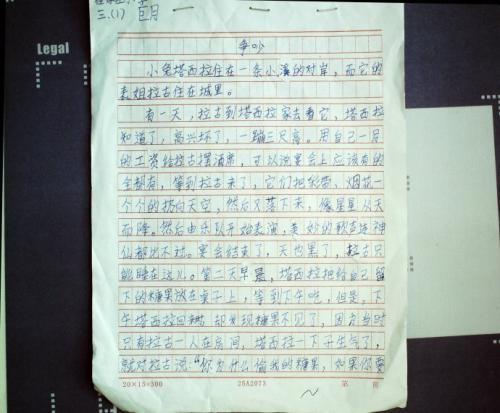 三.(1)
Legal
争吵
小兔塔西拉住在一条小溪的对岸,而它的
表姐拉古住在城里。
有一天,拉古到塔西拉家去看它,塔西拉
知道了,高兴坏了,一蹦三尺高。用自己一月
的工资给拉古摆酒席,可以说宴会上应该有的
全都有,等到拉古来了,它们把彩带,烟花一
个个的抛向天空,然后又落下来,像星星从天
而降。然后由乐队开始表演,美妙的歌声连神
仙都比不过。宴会结束了,天也黑了,拉古只
能睡在这儿。第二天早晨,塔西拉把给自己留
下的糖果放在桌子上,等到下午吃,但是,下
午塔西拉回来 却发现糖果不见了,因为当时
只有拉古一人在房间,塔西拉一下子生气了,
就对拉古说:“你为什么偷我的糖果,如果你要
20×15=300 25A2073 第 页